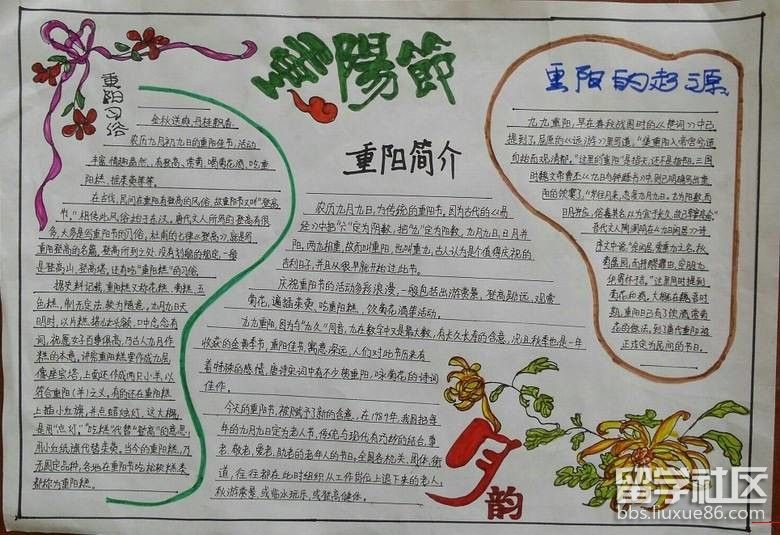 重陽節
重阳习俗
金秋送爽,丹桂飘香。
农历九月初九日的重阳佳节,活动
丰富,情趣盎然,有登高、赏菊、喝菊花酒、吃重
阳糕、插茱萸等等。
在古代,民间在重阳有登高的风俗,故重阳节又叫“登高
节”。相传此风俗始于东汉。唐代文人所写的登高诗很
多,大多是写重阳节的习俗;杜甫的七律《登高》,就是写
重阳登高的名篇。登高所到之处,没有划一的规定,一般
是登高山、登高塔。还有吃“重阳糕”的习俗。
据史料记载,重阳糕又称花糕、菊糕、五
色糕,制无定法,较为随意。九月九日天
明时,以片糕搭儿女头额,口中念念有
词,祝愿子女百事俱高,乃古人九月作
糕的本意。讲究的重阳糕要作成九层,
像座宝塔,上面还作成两只小羊,以
符合重阳(羊)之义。有的还在重阳糕
上插小红旗,并点蜡烛灯。这大概
是用“点灯”、“吃糕”代替“登高”的意思,
用小红纸旗代替茱萸。当今的重阳糕,乃
无固定品种,各地在重阳节吃松软糕类
都称为重阳糕。
重阳简介
农历九月九日,为传统的重阳节。因为古代的《易
经》中把“六”定为阴数,把“九”定为阳数,九月九日,日月并
阳,两九相重,故而叫重阳,也叫重九,古人认为是个值得庆贺的
吉利日子,并且从很早就开始过此节。
庆祝重阳节的活动多彩浪漫,一般包括出游赏景、登高眺远、观赏
菊花、遍插茱萸、吃重阳糕、饮菊花酒等活动。
九九重阳,因为与“久久”同音,九在数字中又是最大数,有长久长寿的含意,况且秋季也是一年
收获的金黄季节,重阳佳节,寓意深远,人们对此节历来有
着特殊的感情,唐诗宋词中有不少贺重阳,咏菊花的诗词
佳作。
今天的重阳节,被赋予了新的含意,在1989年,我国把每
年的九月九日定为老人节,传统与现代巧妙的结合,尊
老、敬老、爱老、助老的老年人的节日。全国各机关、团体、街
道,往往都在此时组织从工作岗位上退下来的老人,
秋游赏景,或临水玩乐,或登高健体。
重阳的起源
九九重阳,早在春秋战国时的《楚词》中已
提到了。屈原的《远游》里写道:“集重阳入帝宫兮,造
旬始而观清都”。这里的“重阳”是指天,还不是指节日。三国
时魏文帝曹丕《九日与钟繇书》中,则已明确写出重
阳的饮宴了:“岁往月来,忽复九月九日。九为阳数,而
日月并应,俗嘉其名,以为宜于长久,故以享宴高会。”
晋代文人陶渊明在《九日闲居》诗
序文中说:“余闲居,爱重九之名。秋
菊盈园,而持醪靡由,空服九
华,寄怀于言”。这里同时提到
菊花和酒。大概在魏晋时
期,重阳日已有了饮酒、赏菊
花的做法。到了唐代重阳被
正式定为民间的节日。
九月
韵
留学社区
bbs.liuxue86.com